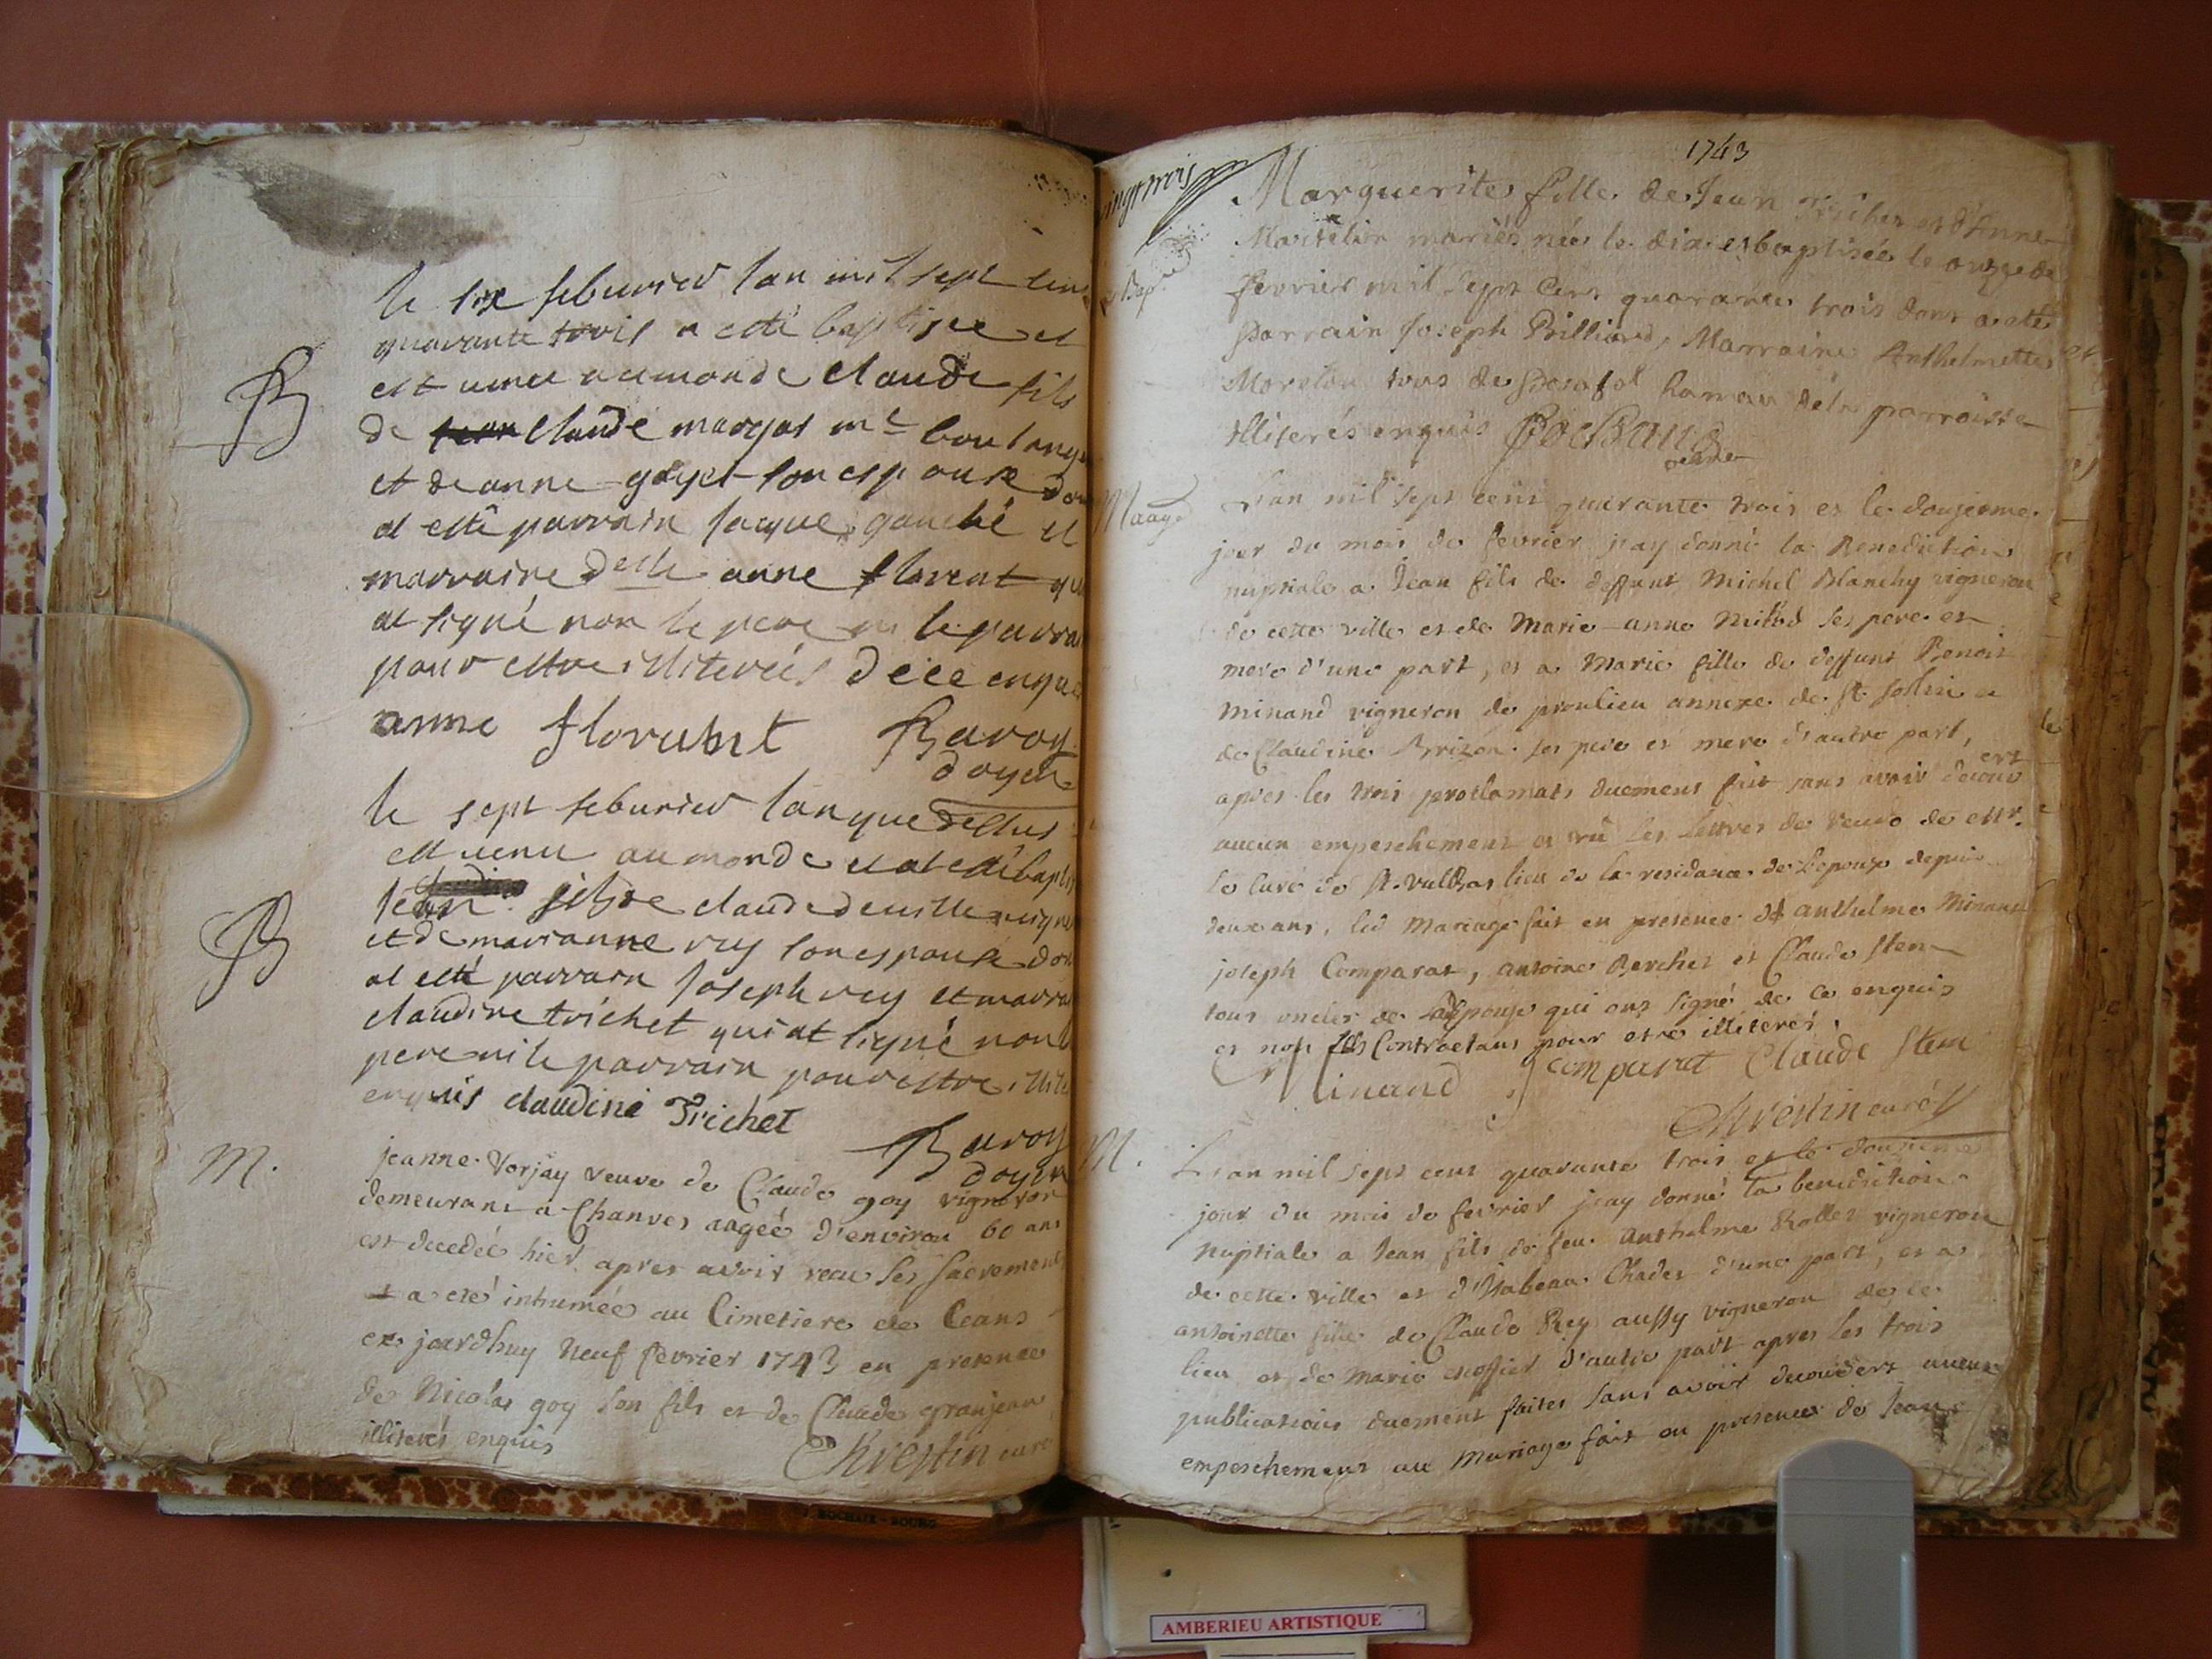 le six feburier lan mil sept cens
quarante trois a esté baptisee et
est venu au monde claude fils
de claude margat me boulanger
et de anne goyet son espouse don
at esté parrain jacque gauché et
marraine delle anne florent qui
at signé non le pere ni le parrai
pour estre illiterées de ce enquis
anne florent Baroz
doyen
B
le sept feburier lan que dessus
est venu au monde et at esté baptis
jean fils de claude deville vigne
et de marianne rey son espouse don
at esté parrain Joseph rey et marrai
claudine trichet qui at signé non l
pere ni le parrain pour estre illit
enquis claudine Trichet
Baroz
doyen
B
M.
jeanne Vorjay veuve de Claude goy vigneron
demeurant a Chanves aagée d'environ 60 ans
est decedée hier apres avoir recu les sacrements
et a eté inhumée au Cimetiere de Ceans
ce jourdhuy neuf fevrier 1743 en presence
de Nicolas goy son fils et de Claude granjean
illiterés enquis Chrestin curé
1743
vingt trois
Bap.
Marguerite fille de Jean et d'Anne
mariés née le dix et baptisée le onze de
fevrier mil sept cent quarante trois dont a eté
Parrain Joseph Billiard, Marraine Anthelmette
Moreton tous de hameau de la parroisse
illiterés enquis
Mariage
L'an mil sept cent quarante trois et le douzieme
jour du mois de fevrier j'ay donné la Benediction
nuptiale a Jean fils de deffunt Michel Blanchy vigneron
de cette ville et de Marie anne ses pere et
mere d'une part, et a Marie fille de deffunt Benoit
Minand vigneron de proulieu annexe de St. Sorlin et
de Claudine Brizon ses pere et mere d'autre part,
apres les trois proclamats duement fait sans avoir decouvert
aucun empeschement et vû les lettres de de Mr.
le curé de St. Vulbas lieu de la residance de l'epoux depuis
deux ans, led Mariage fait en presence d'anthelme Minand
joseph Comparat, antoine Berchet et Claude Stem
tous oncles de l'epouse qui ont signé de ce enquis
et non les Contractans pour etre illiterés.
Minand J comparat Claude Stem
Chrestin curé
M.
L'an mil sept cent quarante trois et le douzieme
jour du mois de fevrier j'ay donné la benediction
nuptiale a Jean fils de feu Anthelme Rollet vigneron
de cette ville et d'Isabeau Chadet d'une part, et a
antoinette fille de Claude Rey aussy vigneron de ce
lieu et de Marie d'autre part apres les trois
publications duement faites sans avoir decouvert aucun
empeschement au Mariage fait en presence de Jean
J. ROCHAIX - BOURG
AMBERIEU ARTISTIQUE